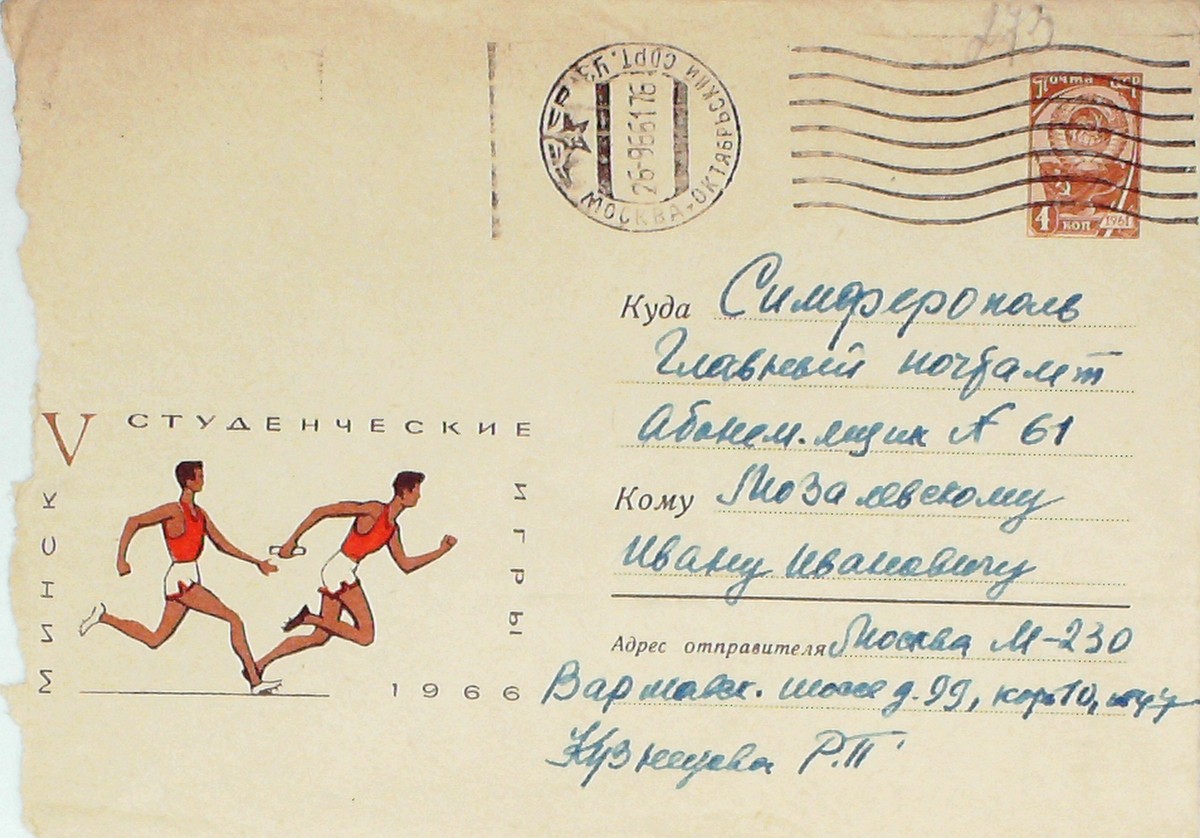 273
Почта СССР
4 коп 1961
МОСКВА-ОКТЯБРЬСКИЙ СОРТ. УЗ.
СССР
26-9661 76
Куда Симферополь
Главный почтамт
Абонем. ящик № 61
Кому Мозалевскому
Ивану Ивановичу
Адрес отправителя Москва М-230
Варшавск. шоссе д. 99, корп 10,
Кузнецова Р.П
V СТУДЕНЧЕСКИЕ
ИГРЫ
МИНСК
1966